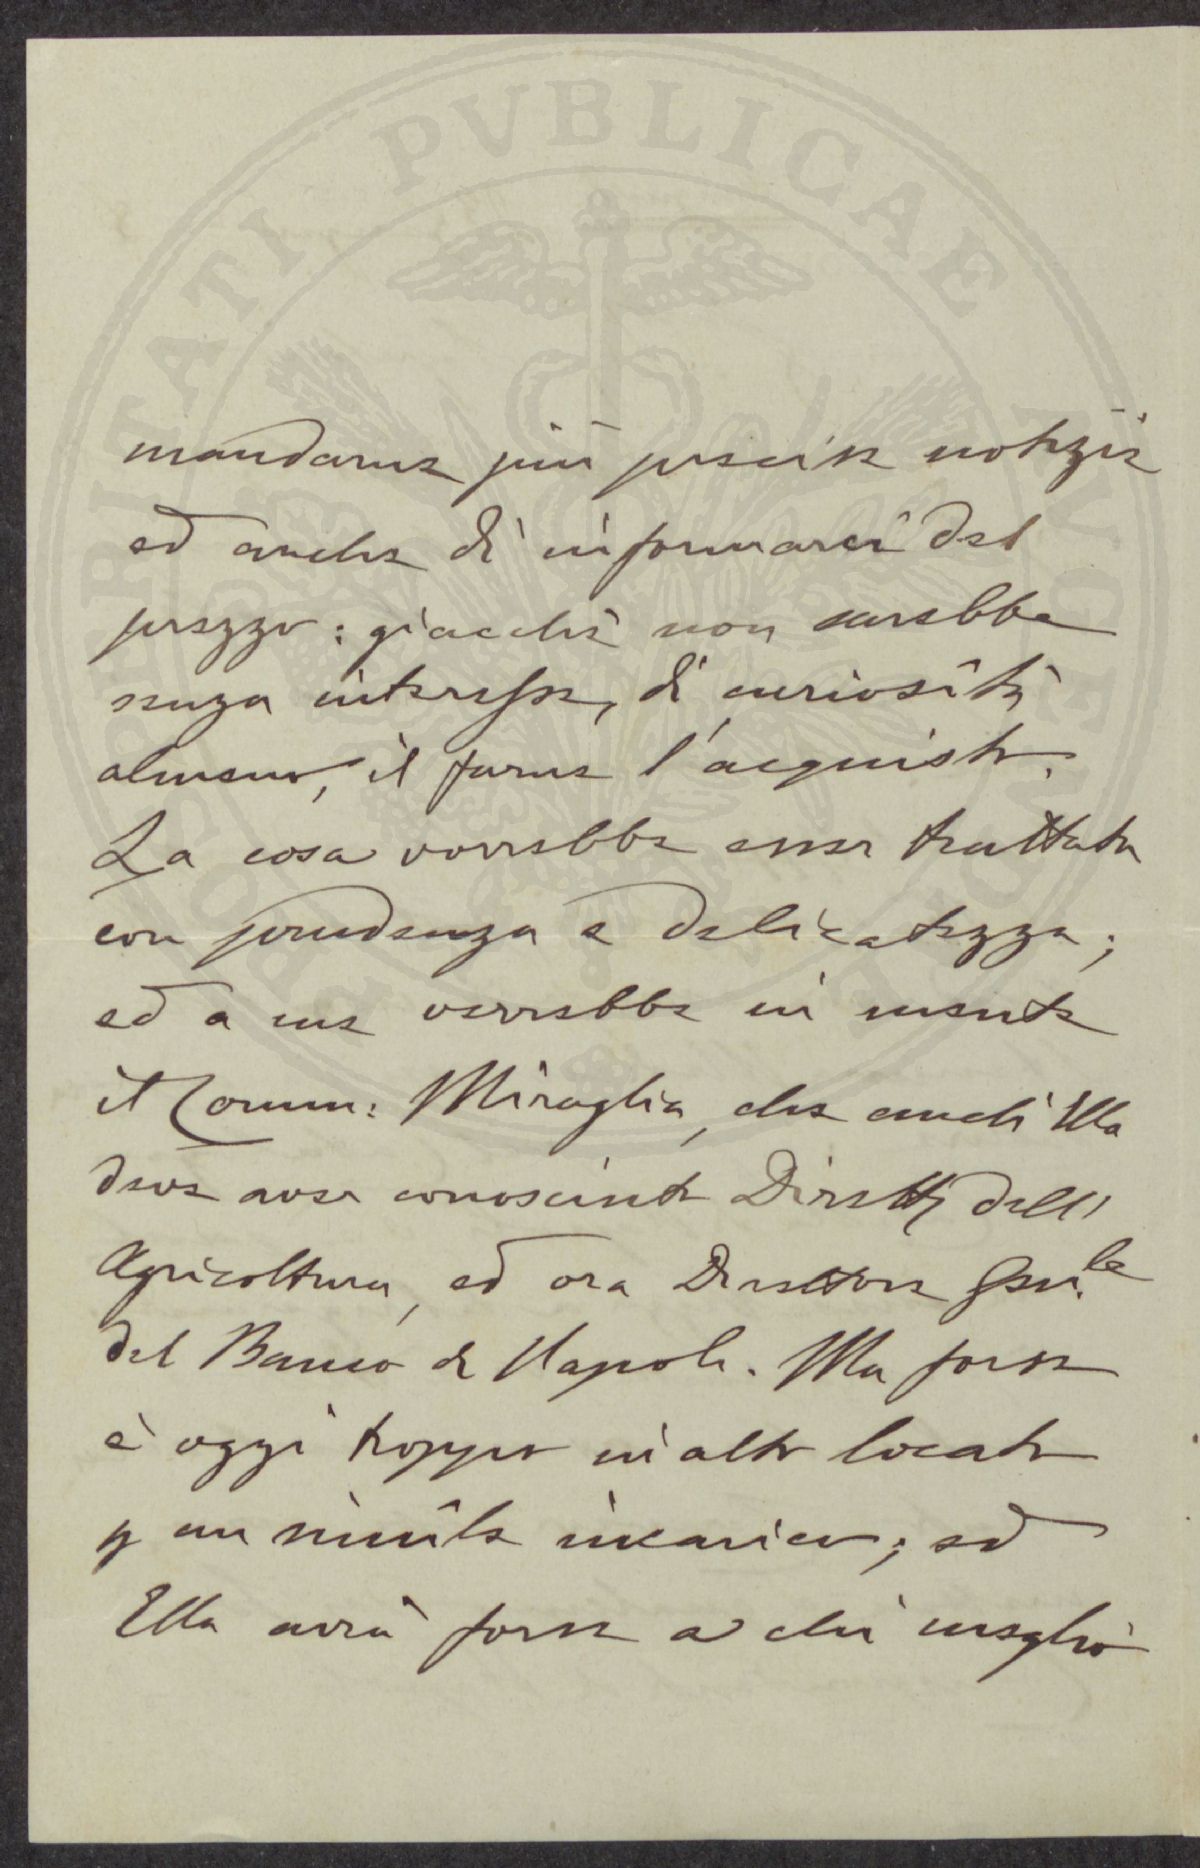 PROSPERITATI PVBLICAE NOVE
mandarne più precise notizie
ed anche di informarci del
prezzo: giacchè non sarebbe
senza interesse, di curiosità
almeno, il farne l'acquisto.
La cosa vorrebbe esser trattata
con prudenza e delicatezza;
ed a me verrebbe in mente
il Comm: Miraglia, che anch' Ella
deve aver conosciuto Dirett. dell'
Agricoltura, ed ora Direttore Gen.le
del Banco di Napoli. Ma forse
è oggi troppo in alto locato
p un simile incarico; ed
Ella avrà forse a chi meglio